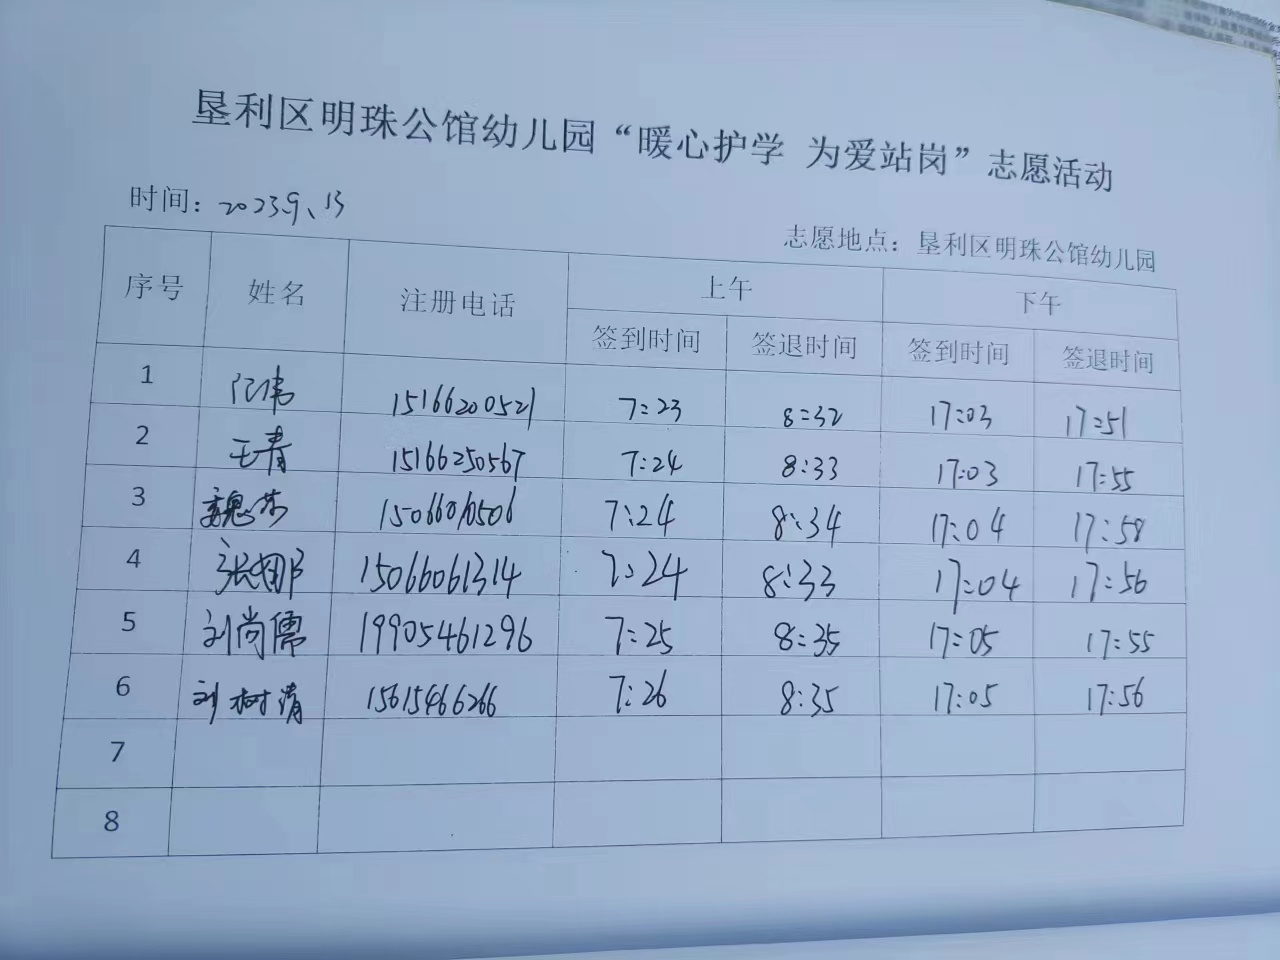 垦利区明珠公馆幼儿园“暖心护学 为爱站岗”志愿活动
时间：2023.9、13
志愿地点：垦利区明珠公馆幼儿园
序号 姓名 注册电话 上午 下午
签到时间 签退时间 签到时间 签退时间
1 15166200521 7:23 8:32 17:03 17:51
2 王青 15166250567 7:24 8:33 17:03 17:55
3 魏 15066010506 7:24 8:34 17:04 17:58
4 张娜 15066061314 7:24 8:33 17:04 17:56
5 刘尚儒 19905461296 7:25 8:35 17:05 17:55
6 刘树清 15615466266 7:26 8:35 17:05 17:56
7
8